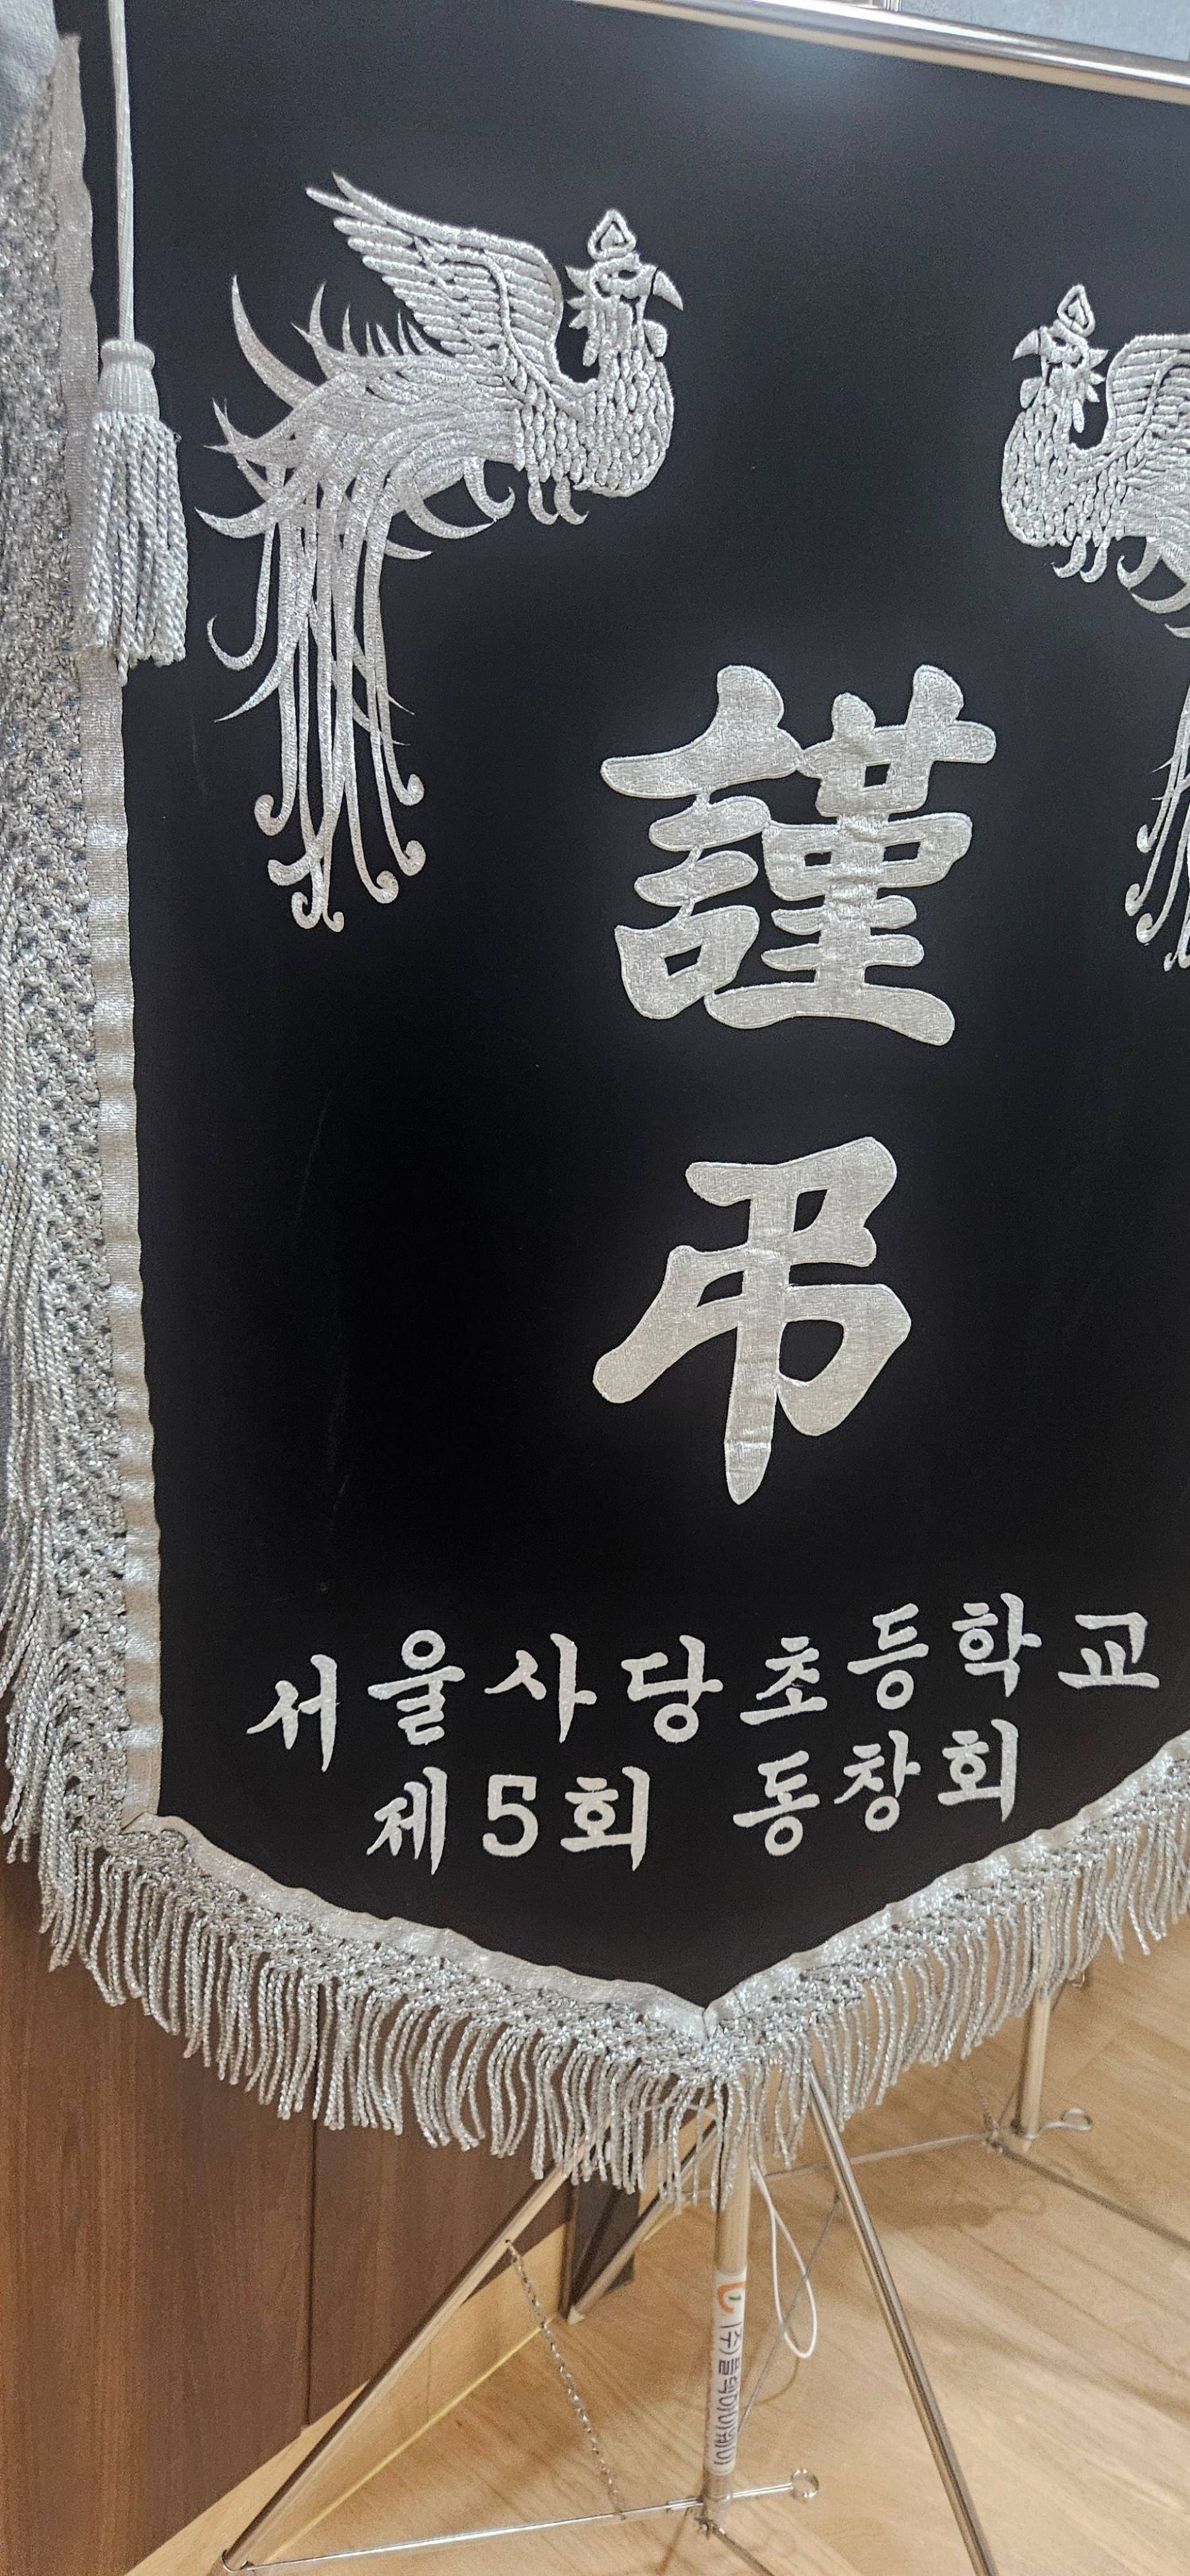 謹
弔
서울사당초등학교
제5회 동창회